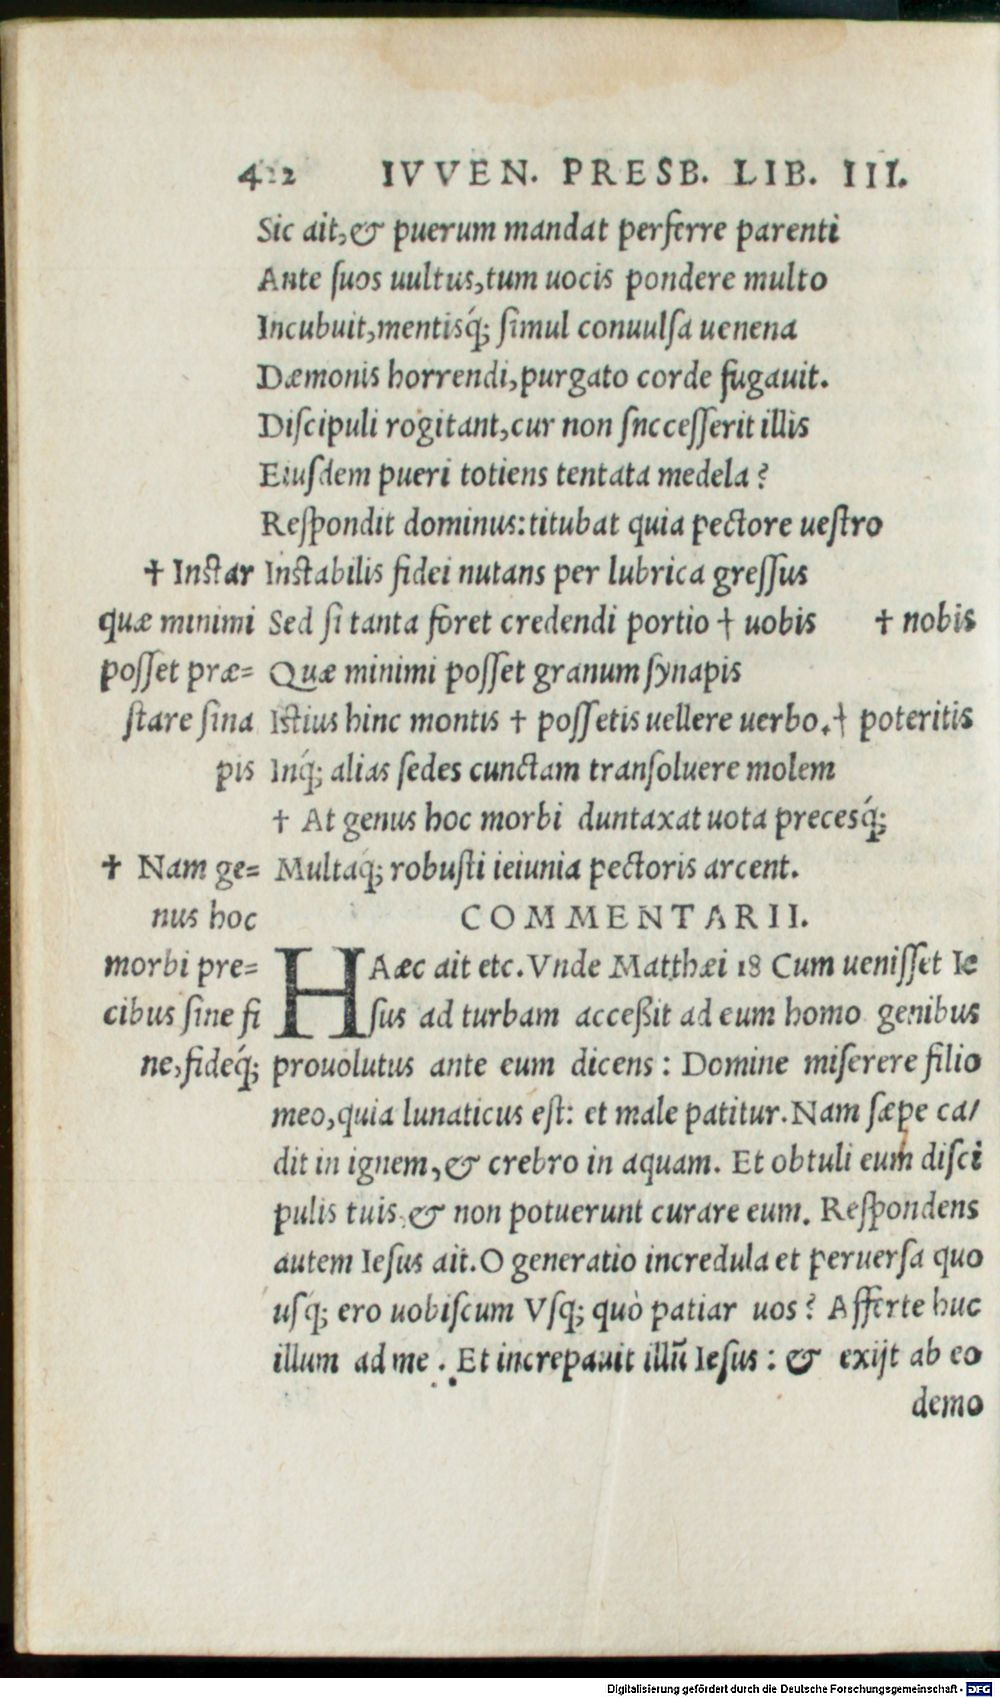 412 IVVEN. PRESB. LIB. III.
Sic ait, & puerum mandat perferre parenti
Ante ſuos uultus, tum uocis pondere multo
Incubuit, mentisq́; ſimul conuulſa uenena
Dæmonis horrendi, purgato corde fugauit.
Diſcipuli rogitant, cur non ſncceſſerit illis
Eiuſdem pueri totiens tentata medela?
Reſpondit dominus: titubat quia pectore ueſtro
Inſtabilis fidei nutans per lubrica greſſus
Sed ſi tanta foret credendi portio † uobis
Quæ minimi poſſet granum ſynapis
Iſtius hinc montis † poſſetis uellere uerbo.
Inq́; alias ſedes cunctam tranſoluere molem
† At genus hoc morbi duntaxat uota precesq́;
Multaq́; robuſti ieiunia pectoris arcent.
† Inſtar
quæ minimi
poſſet præ=
ſtare ſina
pis
† Nam ge=
nus hoc
morbi pre=
cibus ſine fi
ne, fideq́;
† nobis
† poteritis
COMMENTARII.
HAæc ait etc. Vnde Matthæi 18 Cum ueniſſet Ie
ſus ad turbam acceßit ad eum homo genibus
prouolutus ante eum dicens: Domine miſerere filio
meo, quia lunaticus eſt: et male patitur. Nam ſæpe ca/
dit in ignem, & crebro in aquam. Et obtuli eum diſci
pulis tuis, & non potuerunt curare eum. Reſpondens
autem Ieſus ait. O generatio incredula et peruerſa quo
uſq́; ero uobiſcum Vſq; quò patiar uos? Afferte huc
illum ad me. Et increpauit illū Ieſus: & exijt ab eo
demo
Digitalisierung gefördert durch die Deutsche Forschungsgemeinschaft - DFG